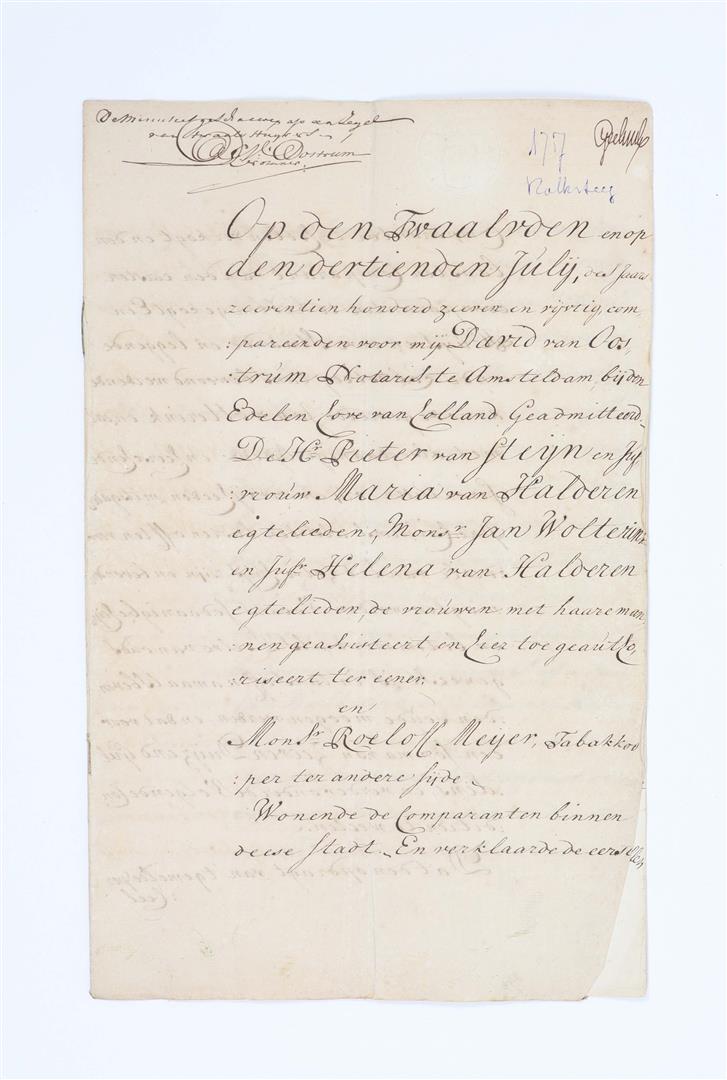 De Minut is geschreven op een Zegel
van twaals
D. v. Oostrum
Op den Twaalvden en op
den dertienden Julij, des Jaars
zeeventien honderd zeeven en vijvtig, com
:pareerden voor mij David van Oos,
:trum Notaris te Amsteldam, bij den
Edelen Hove van Holland Geadmitteerd,
De Hr. Pieter van Steijn en Juf,
:vrouw Maria van Halderen
egtelieden, Monsr. Jan Wolterink
en Jufr. Helena van Halderen
egtelieden, de vrouwen met haare man
:nen geassisteert en hier toe geautho,
:riseert ter eener,
en
Monsr. Roeloff Meyer, Tabakkoo
:per ter andere sijde.
Wonende de Comparanten binnen
deese Stadt. En verklaarde de eerste